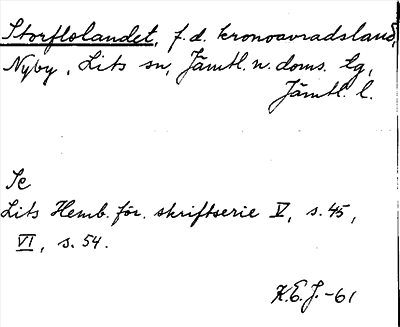 Storflolandet, f.d. kronoavradsland,
Nyby, Lits sn, Jämtl. n. doms. tg,
Jämtl. l.
Se
Lits Hemb. för. skriftserie V, s. 45,
VI, s. 54.
K.E.J.-61